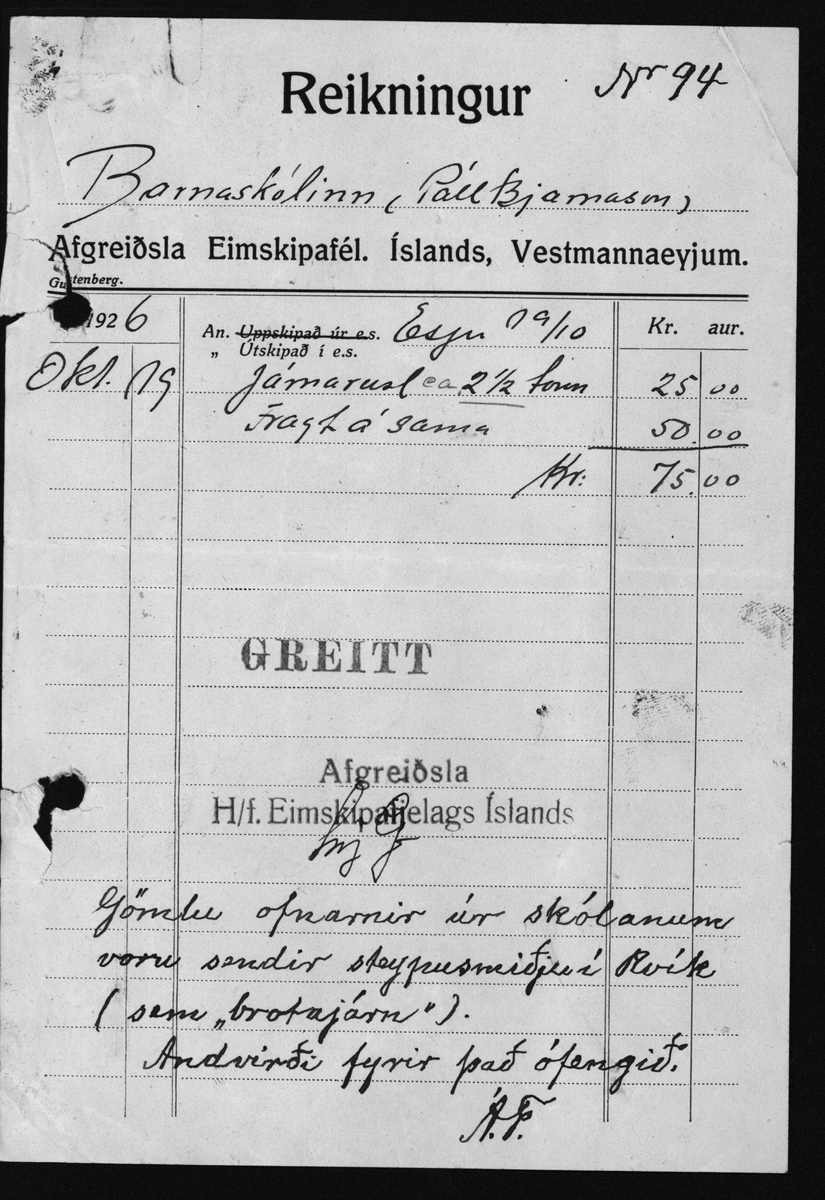 Reikningur Nr 94
Barnaskólinn (Páll Bjarnason)
Afgreiðsla Eimskipafél. Íslands, Vestmannaeyjum.
Gutenberg.
1926 An. Uppskipað úr e.s. Esju 19/10 Kr. aur.
„ Útskipað í e.s.
Okt. 19 Járnarusl ca 2 1/2 tonn 25 00
Fragt á sama 50.00
Kr: 75.00
GREITT
Afgreiðsla
H/f. Eimskipafjelags Íslands
Gömlu ofnarnir úr skólanum
voru sendir steypusmiðju í Rvík
(sem „brotajárn“).
Andvirði fyrir það ófengið.
Á.F.